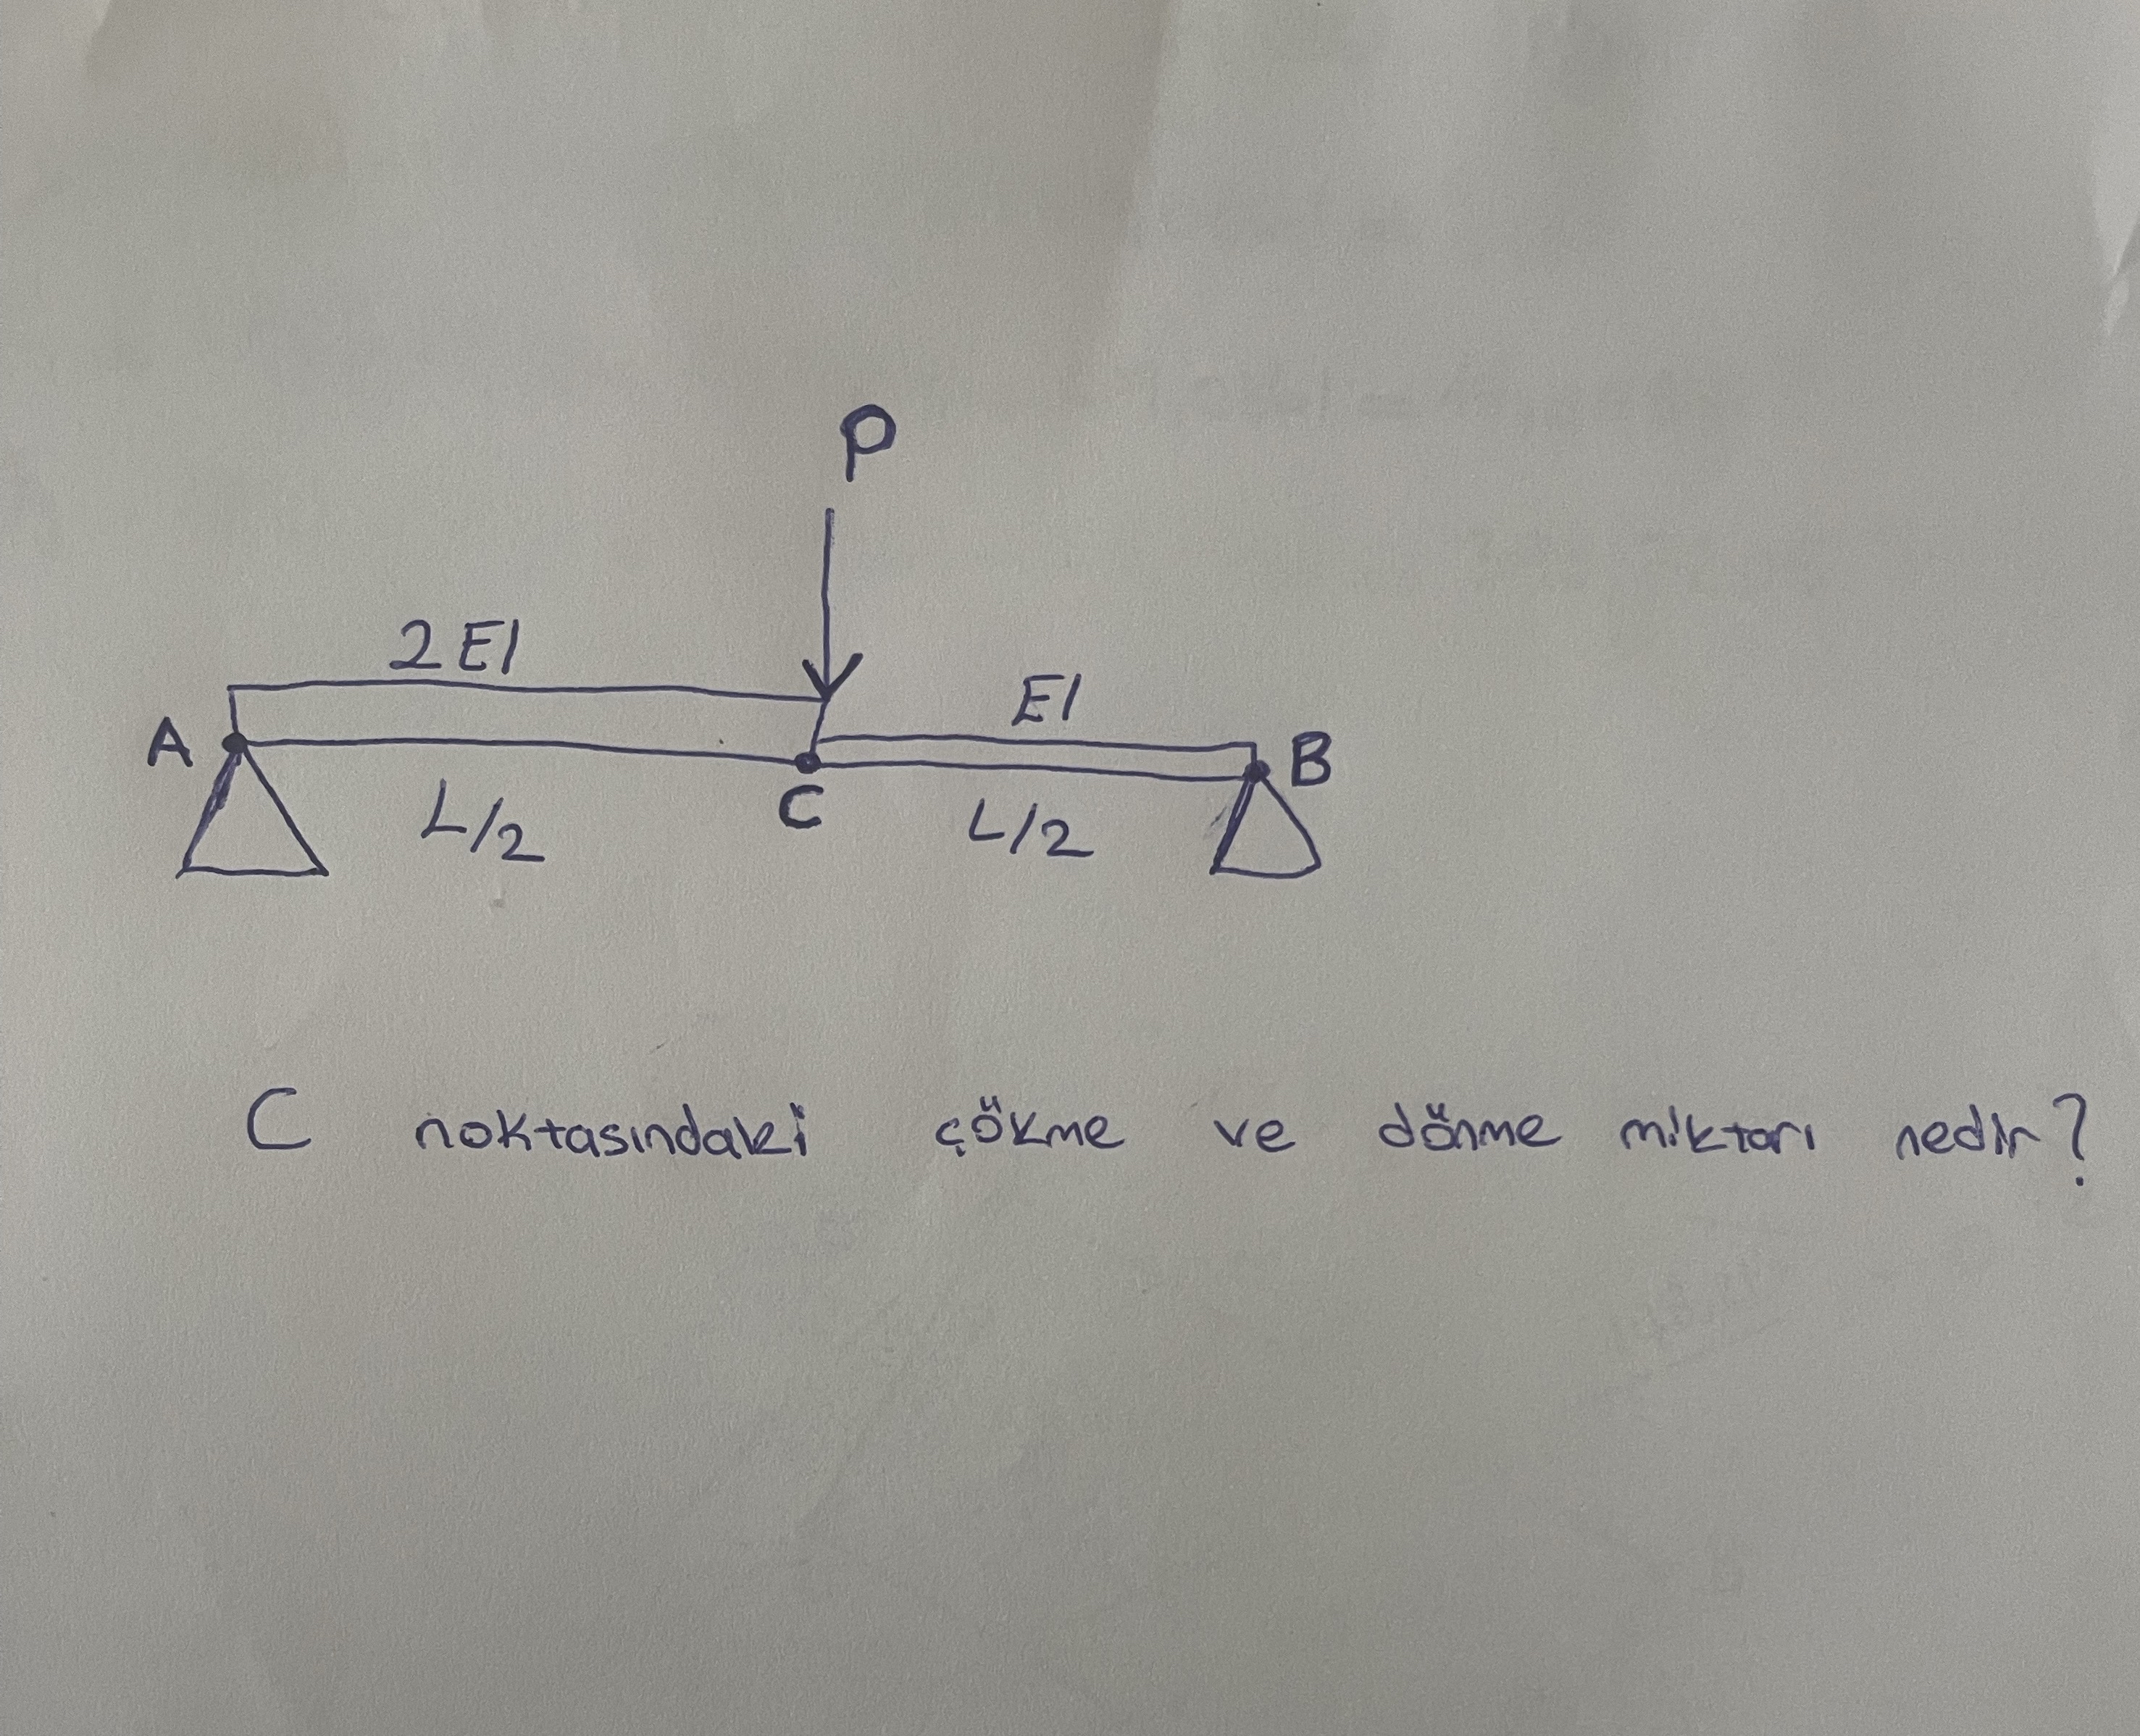 P
2EI
EI
A
B
C
L/2
L/2
C noktasındaki çökme ve dönme miktarı nedir?